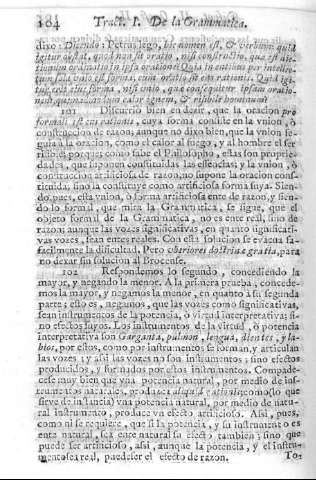 104 Tract. I. De la Grammatica.
dixo: Dicendo: Petrus lego, hic nomen est, & verbum: quid
igitur obstat, quod non sit oratio, nisi constructio, quæ est
unionem orationis in ipsa oratione? Quia in entium per intellec-
tum sola unio est forma, cum oratio sit ens rationis. Quid igi-
tur erit eius forma, nisi unio, quæ consequitur ipsam oratio-
nem, quemadmodum calor ignem, & risibile hominem?
101 Discurrio bien en decir, que la oracion pro
formali est ens rationis, cuya forma consiste en la vnion, ò
construccion de razon, aunque no dixo bien, que la vnion se
guia à la oracion, como el calor al fuego, y al hombre el ser
risible; porque como sabe el Philosopho, estas son proprie-
dades, que suponen constituidas las essencias; y la vnion, ò
construccion artificiosa de razon, no supone la oracion cons-
tituida; sino la constituye como artificiosa forma suya. Sien-
do, pues, esta vnion, ò forma artificiosa ente de razon, y sien-
do lo formal, que mira la Grammatica, se sigue, que el
objeto formal de la Grammatica, no es ente real, sino de
razon; aunque las vozes significativas, en quanto significati-
vas vozes, sean entes reales. Con esta solucion se evacua fa-
cilmente la dificultad. Pero vlterioris doctrinæ gratia, para
no dexar sin solucion al Brocense.
102 Respondemos lo segundo, concediendo la
mayor, y negando la menor. A la primera prueba, concede-
mos la mayor, y negamos la menor, en quanto à su segunda
parte; esto es, negamos, que las vozes como significativas,
sean instrumentos de la potencia, ò virtud interpretativa; si-
no efectos suyos. Los instrumentos de la virtud, ò potencia
interpretativa son Garganta, pulmon, lengua, dientes, y la-
bios, por estos, como por instrumentos se forman, y articulan
las vozes; y assi las vozes no son instrumentos; sino efectos
producidos, y formados por estos instrumentos. Compade-
cese muy bien que vna potencia natural, por medio de ins-
trumentos naturales, produzca aliquid rationis; como (lo que
sirve de instancia) vna potencia natural, por medio de natu-
ral instrumento, produce vn efecto artificioso. Assi, pues,
como ni se requiere, que si la potencia, y su instrumento es
ente natural, sea ente natural su efecto tambien; sino que
puede ser artificioso, assi, aunque la potencia, y el instru-
mento sea real, puede ser el efecto de razon. To-